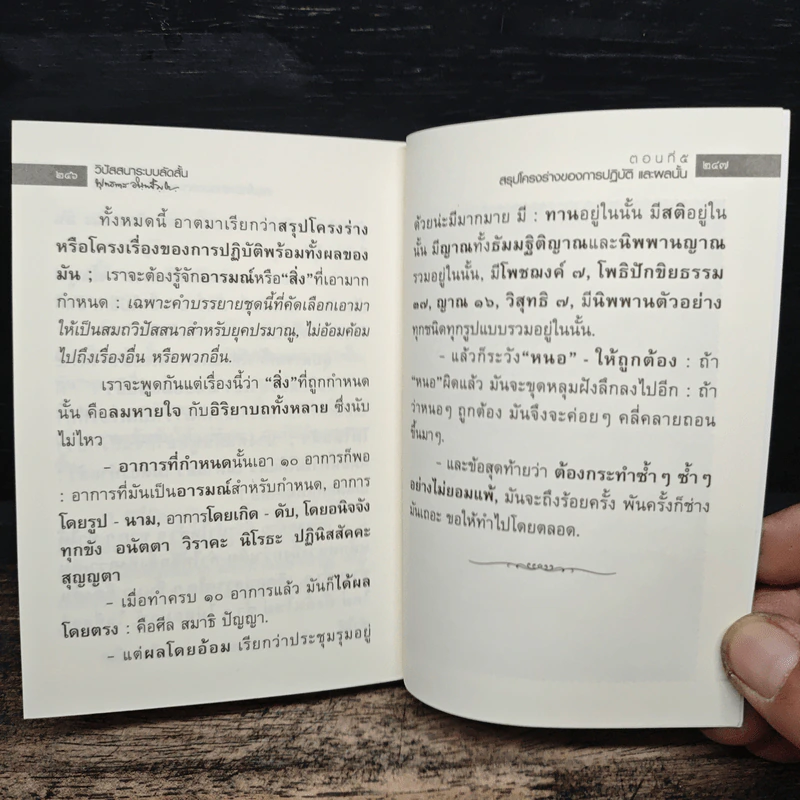 ๒๔๖
วิปัสสนาระบบลัดสั้น
ทั้งหมดนี้ อาตมาเรียกว่าสรุปโครงร่าง
หรือโครงเรื่องของการปฏิบัติพร้อมทั้งผลของ
มัน ; เราจะต้องรู้จักอารมณ์หรือ“สิ่ง”ที่เอามาก
กำหนด : เฉพาะคำบรรยายชุดนี้ที่คัดเลือกเอามา
ให้เป็นสมถวิปัสสนาสำหรับยุคปรมาณู, ไม่อ้อมค้อม
ไปถึงเรื่องอื่น หรือพวกอื่น.
เราจะพูดกันแต่เรื่องนี้ว่า “สิ่ง”ที่ถูกกำหนด
นั้น คือลมหายใจ กับอิริยาบถทั้งหลาย ซึ่งนับ
ไม่ไหว
- อาการที่กำหนดนั้นเอา ๑๐ อาการก็พอ
: อาการที่มันเป็นอารมณ์สำหรับกำหนด, อาการ
โดยรูป - นาม, อาการโดยเกิด - ดับ, โดยอนิจจัง
ทุกขัง อนัตตา วิราคะ นิโรธะ ปฏินิสสัคคะ
สุญญตา
- เมื่อทำครบ ๑๐ อาการแล้ว มันก็ได้ผล
โดยตรง : คือศีล สมาธิ ปัญญา.
- แต่ผลโดยอ้อม เรียกว่าประชุมรุมอยู่
ตอนที่ ๕
สรุปโครงร่างของการปฏิบัติ และผลนั้น
๒๔๗
ด้วยน่ะมีมากมาย มี : ทานอยู่ในนั้น มีสติอยู่ใน
นั้น มีญาณทั้งธัมมฐิติญาณและนิพพานญาณ
รวมอยู่ในนั้น, มีโพชฌงค์ ๗, โพธิปักขิยธรรม
๓๗, ญาณ ๑๖, วิสุทธิ ๗, มีนิพพานตัวอย่าง
ทุกชนิดทุกรูปแบบรวมอยู่ในนั้น.
- แล้วก็ระวัง“หนอ” - ให้ถูกต้อง : ถ้า
“หนอ”ผิดแล้ว มันจะขุดหลุมฝังลึกลงไปอีก : ถ้า
ว่าหนอๆ ถูกต้อง มันจึงจะค่อยๆ คลี่คลายถอน
ขึ้นมาๆ.
- และข้อสุดท้ายว่า ต้องกระทำซ้ำๆ ซ้ำๆ
อย่างไม่ยอมแพ้, มันจะถึงร้อยครั้ง พันครั้งก็ช่าง
มันเถอะ ขอให้ทำไปโดยตลอด.